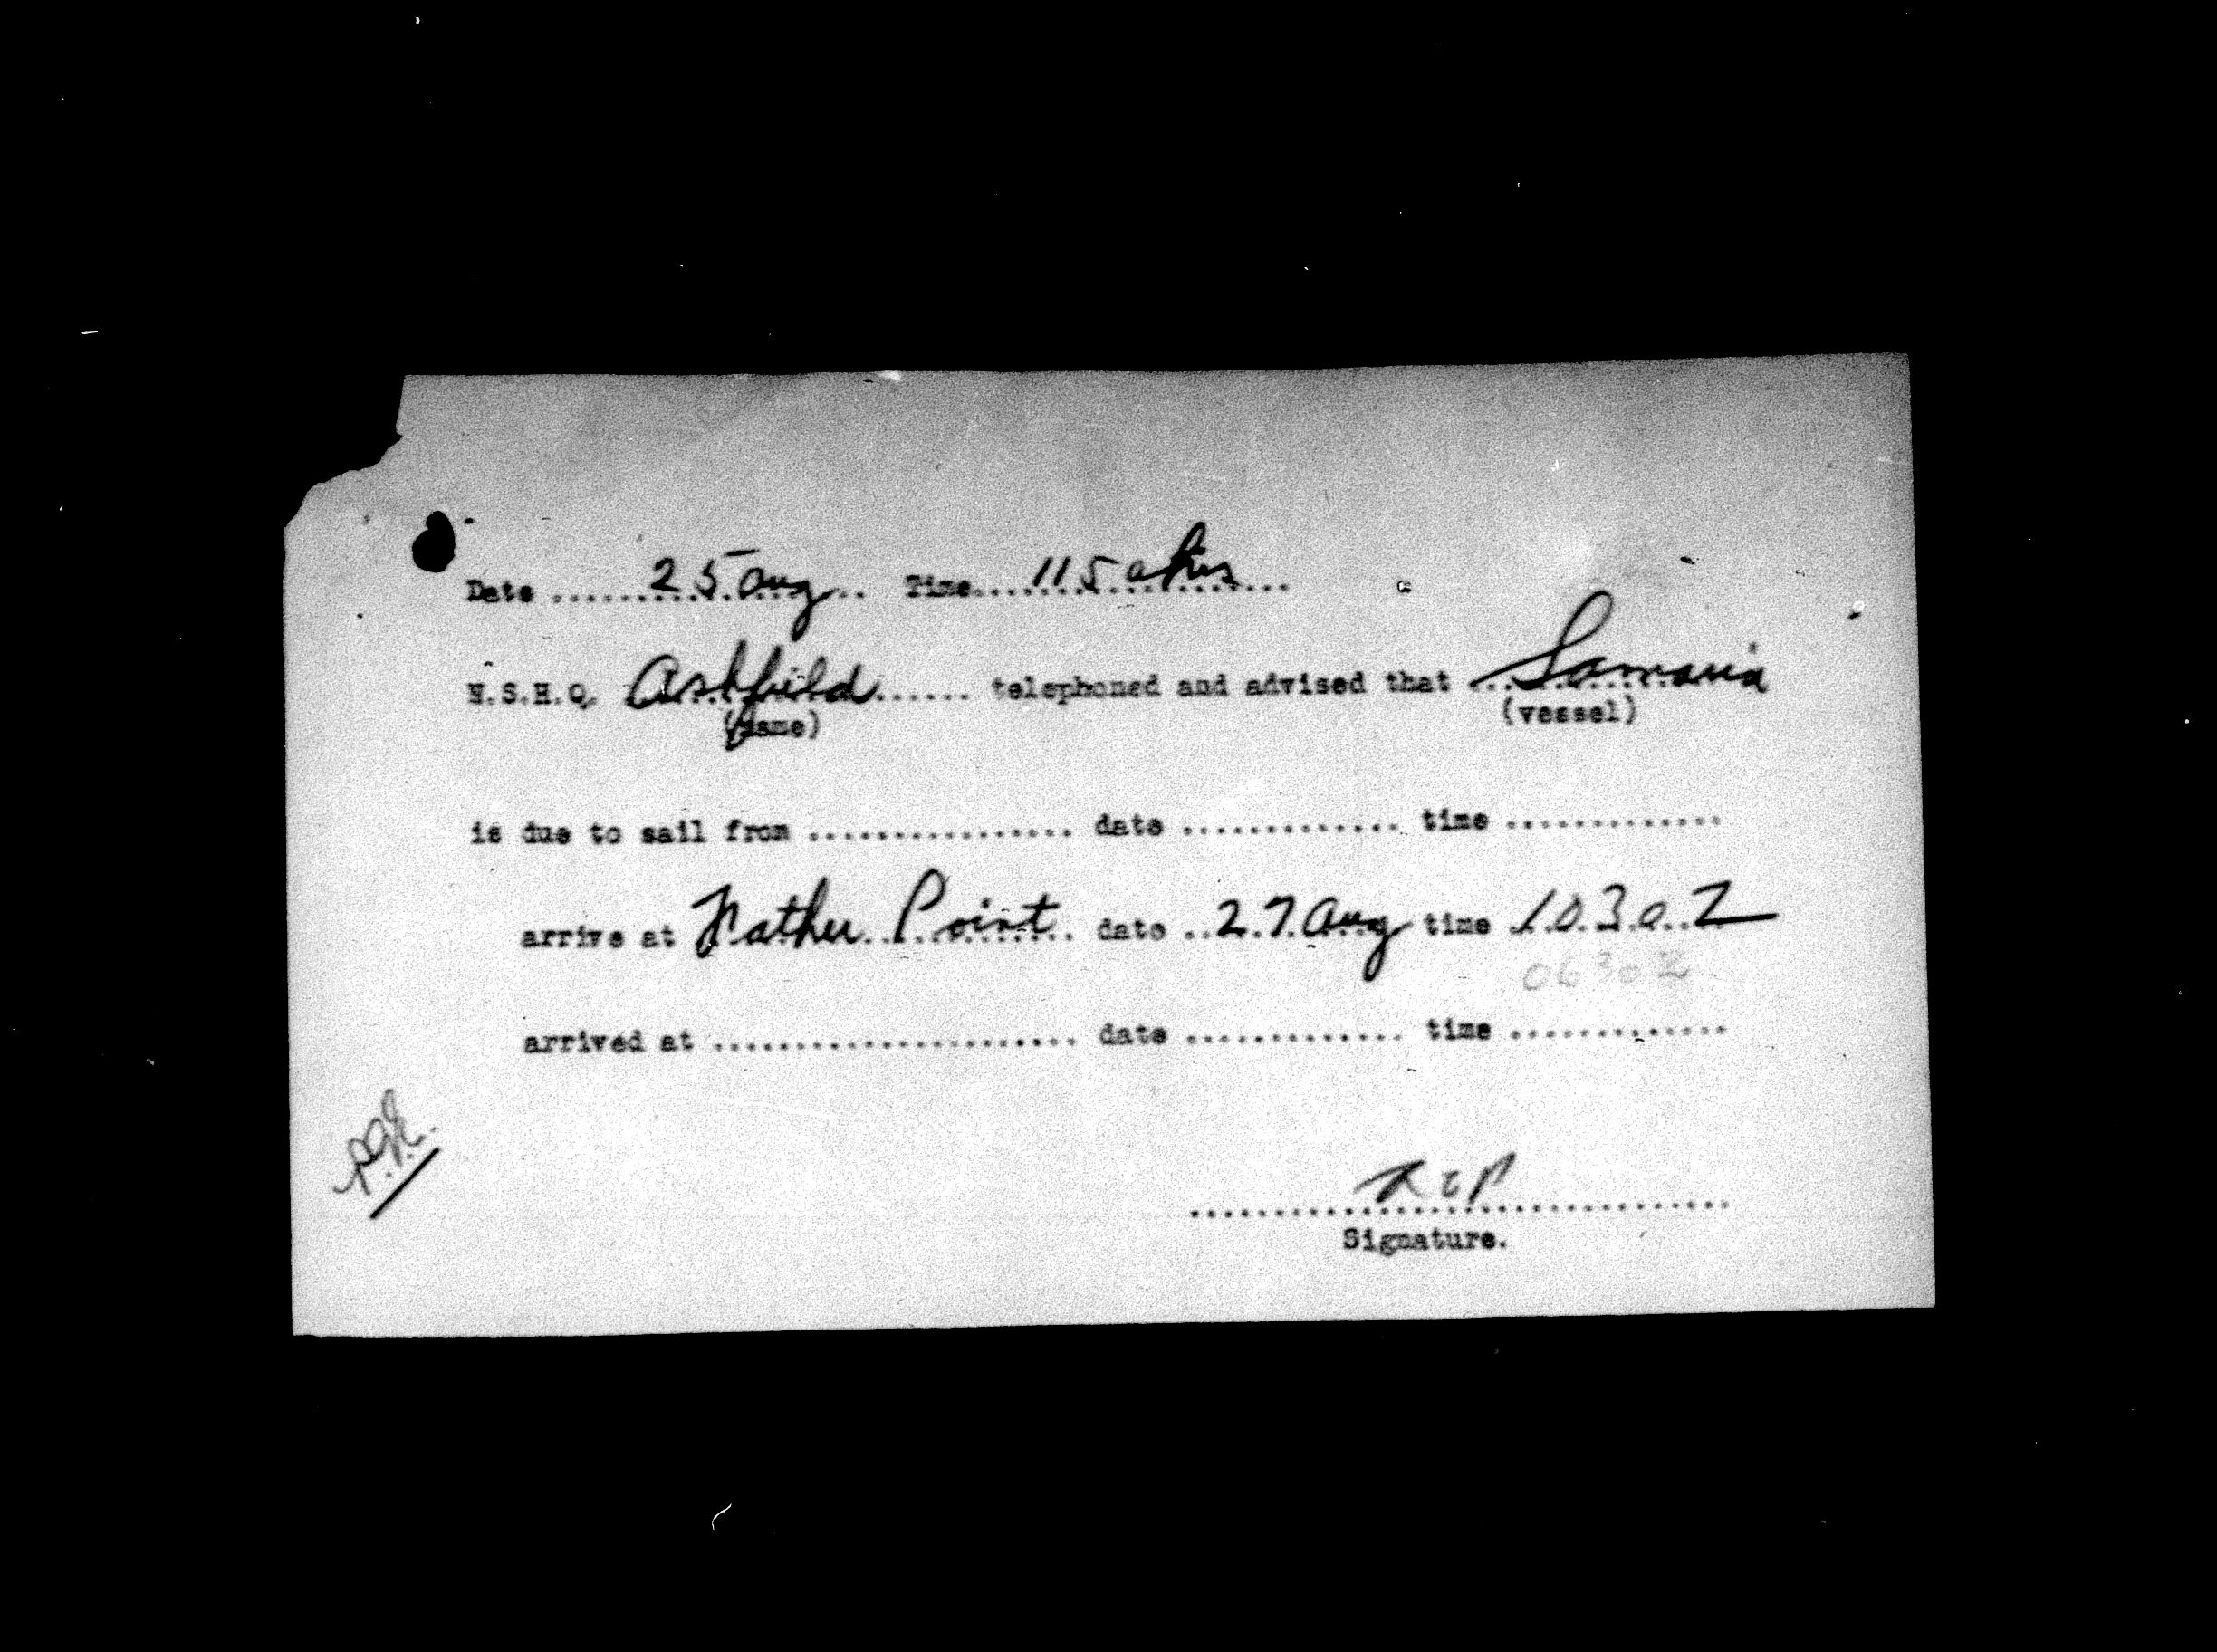 Date ........25 Aug.. Time....1150 hrs....
N.S.H.Q. Ashfield...... telephoned and advised that ..Samaria
(name) (vessel)
is due to sail from ................ date ............. time .............
arrive at Father Point. date ..27.Aug time 1030Z
0630Z
arrived at ...................... date ............. time .............
RCP
.................................
Signature.